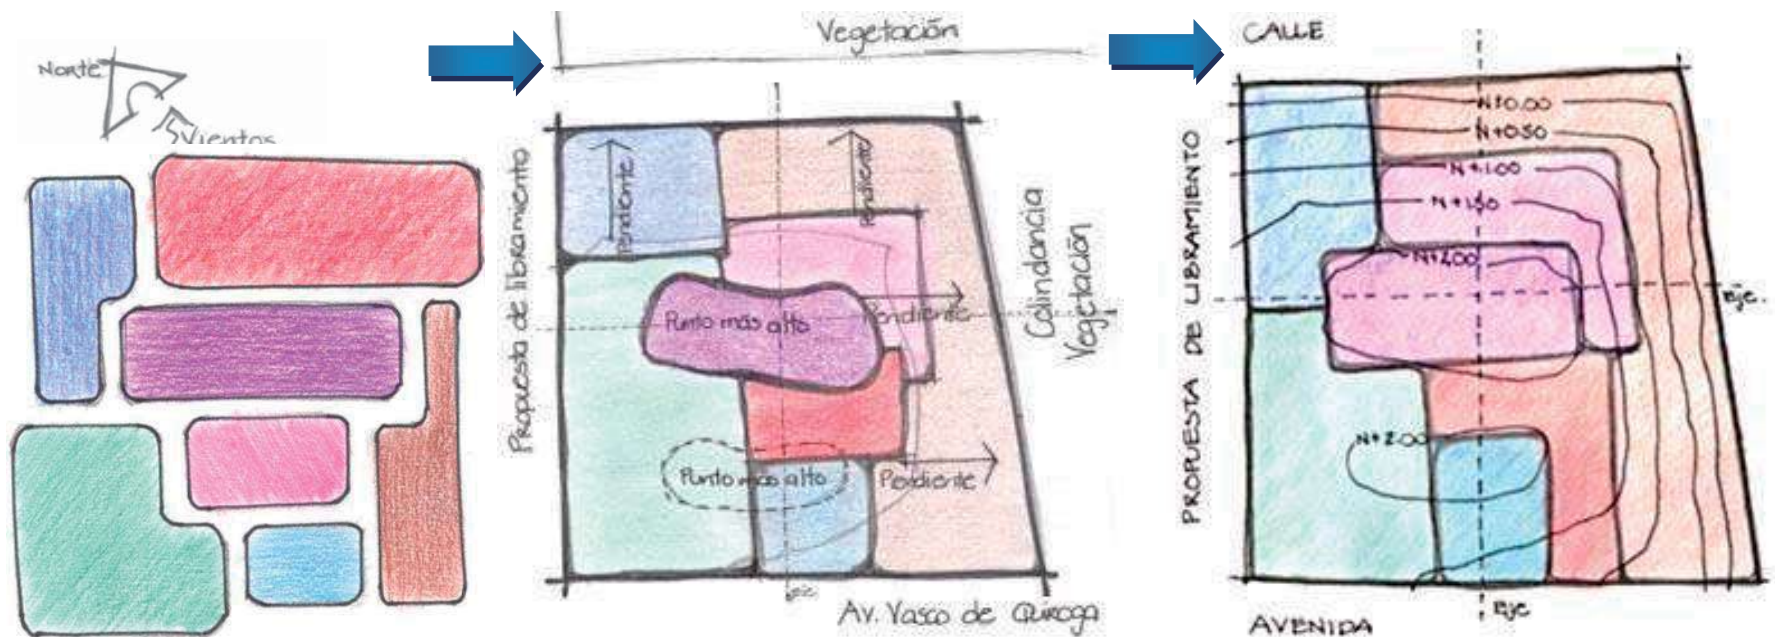 NORTE
Vientos
Vegetación
Propuesta de libramiento
Pendiente
Pendiente
Punto más alto
Pendiente
Punto más alto
Pendiente
Colindancia
Vegetación
eje
Av. Vasco de Quiroga
CALLE
PROPUESTA DE LIBRAMIENTO
N+0.00
N+0.50
N+1.00
N+1.50
N+2.00
Eje.
N+2.00
Eje
AVENIDA